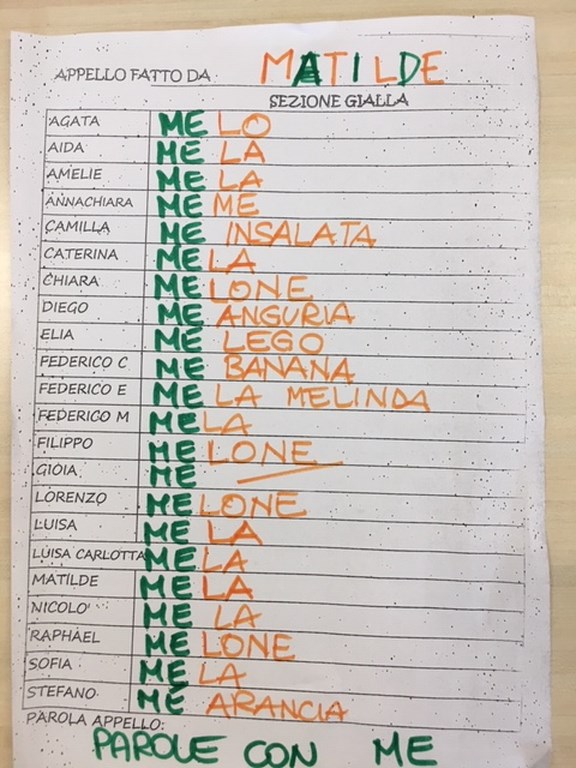 APPELLO FATTO DA MATILDE
SEZIONE GIALLA
AGATA MELO
AIDA ME LA
AMELIE ME LA
ANNACHIARA ME ME
CAMILLA ME INSALATA
CATERINA MELA
CHIARA MELONE
DIEGO ME ANGURIA
ELIA ME LEGO
FEDERICO C ME BANANA
FEDERICO E ME LA MELINDA
FEDERICO M MELA
FILIPPO MELONE
GIOIA ME
LORENZO MELONE
LUISA MELA
LUISA CARLOTTA MELA
MATILDE MELA
NICOLO' ME LA
RAPHAEL MELONE
SOFIA MELA
STEFANO ME ARANCIA
PAROLA APPELLO:
PAROLE CON ME